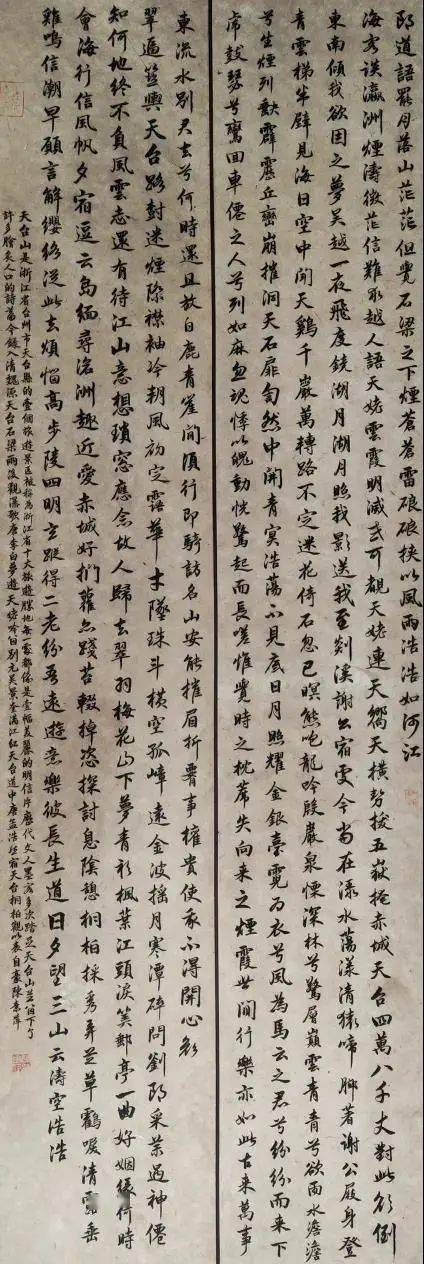 郎道語罷月落山茫茫但覺石梁之下煙蒼蒼雷硠硠挾以風雨浩浩如河江
海客談瀛洲煙濤微茫信難求越人語天姥雲霞明滅或可覩天姥連天嚮天橫勢拔五嶽掩赤城天台四萬八千丈對此欲倒
東南傾我欲因之夢吳越一夜飛度鏡湖月湖月照我影送我至剡溪謝公宿處今尚在淥水蕩漾清猿啼腳著謝公屐身登
青雲梯半壁見海日空中聞天鷄千巖萬轉路不定迷花倚石忽已暝熊咆龍吟殷巖泉慄深林兮驚層巔雲青青兮欲雨水澹澹
兮生煙列缺霹靂丘巒崩摧洞天石扉訇然中開青冥浩蕩不見底日月照耀金銀臺霓為衣兮風為馬云之君兮紛紛而來下
虎鼓瑟兮鸞回車僊之人兮列如麻忽魂悸以魄動怳驚起而長嗟惟覺時之枕席失向來之煙霞世間行樂亦如此古來萬事
東流水別君去兮何時還且放白鹿青崖間須行即騎訪名山安能摧眉折腰事權貴使我不得開心顏
翠逼籃輿天台路對迷煙際襟袖冷朝風初定露華才墜珠斗橫空孤嶂遠金波搖月寒潭碎問劉郎采藥遇神僊
知何地終不負風雲志還有待江山意想瑣窗應念故人歸去翠羽梅花山下夢青衫楓葉江頭淚笑郵亭一曲好姻緣何時
會海行信風帆夕宿逗云島緬尋滄洲趣近愛赤城好捫蘿亦踐苔輟棹恣探討息陰憩桐柏採秀弄芝草鶴唳清露垂
雞鳴信潮早願言解纓絡從此去煩惱高步陵四明玄蹤得二老紛吾遠遊意樂彼長生道日夕望三山云濤空浩浩
天台山是浙江省台州市天台縣的壹個旅遊景區被稱為浙江省十大旅遊勝地每處都像是壹幅美麗的明信片歷代文人墨客多次踏足天台山並留下了
許多膾炙人口的詩篇今錄入清魏源天台石梁雨後觀瀑歌唐李白夢遊天姥吟留別元吳景奎滿江紅天台道中唐孟浩然宿天台桐柏觀以表自豪陳素萍